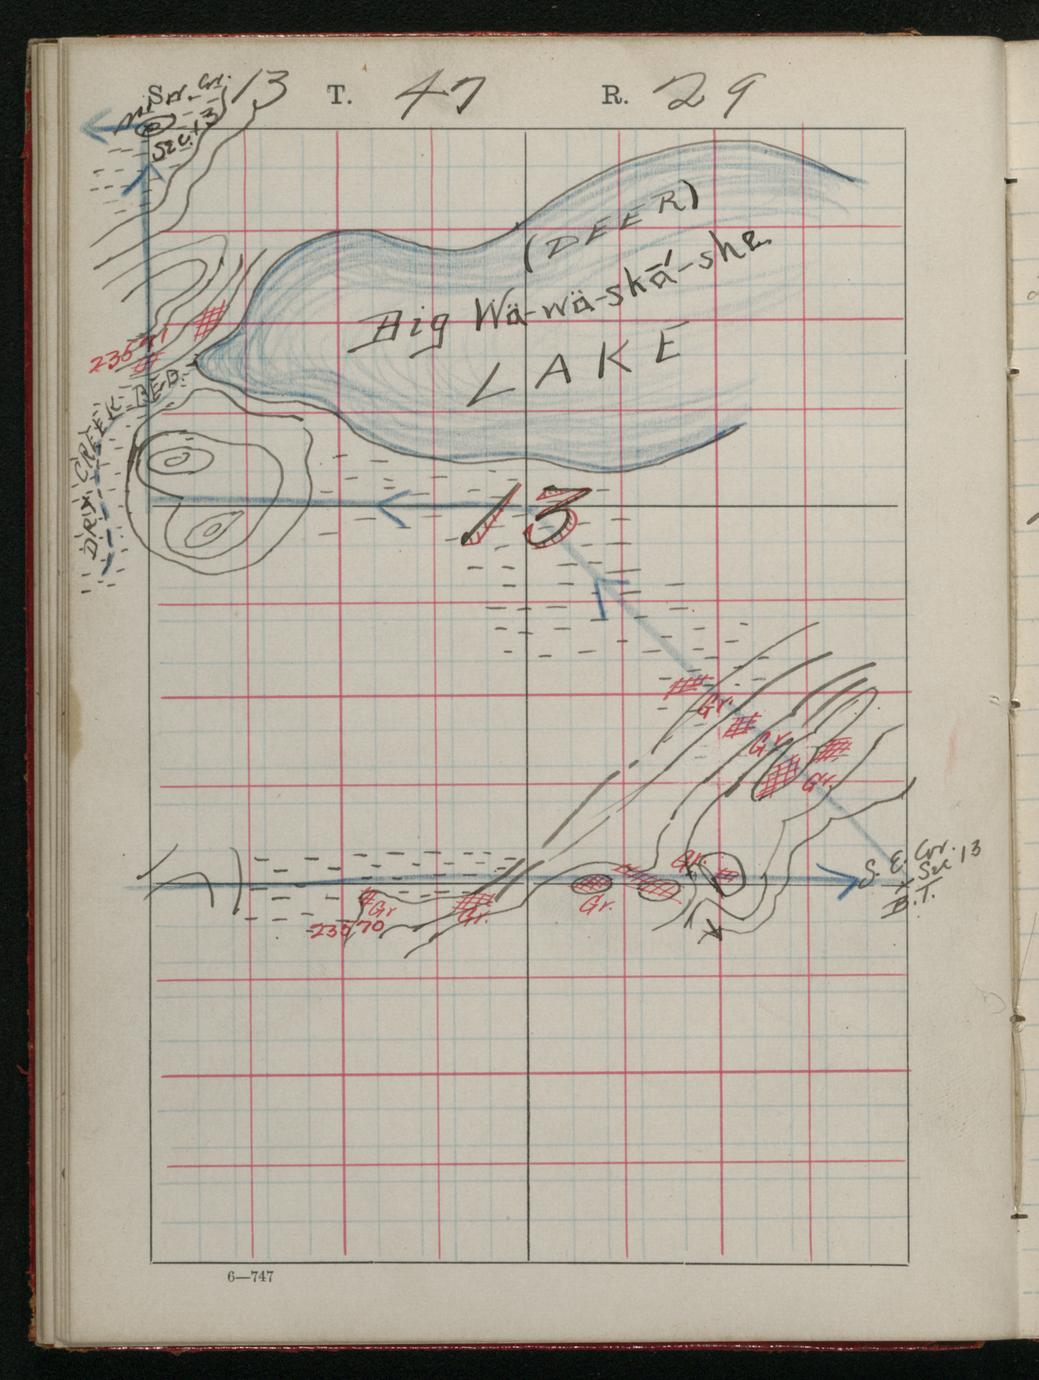 S. 13 T. 47 R. 29
Cor.
Sec. 13
(DEER)
Big Wä-wä-skā́-she
LAKE
DRY CREEK BED.
13
Gr.
Gr.
Gr.
S. E. Cor.
Sec 13
B.T.
Gr.
Gr
Gr.
Gr.
23570
6—747